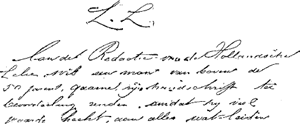 L. L.
Aan de Redactie van de Hollandsche
Lelie. Wilt een man van boven de
50 jaren, zijn handschrift ter
beoordeeling zenden, omdat hij veel
waarde hecht, aan alles wat